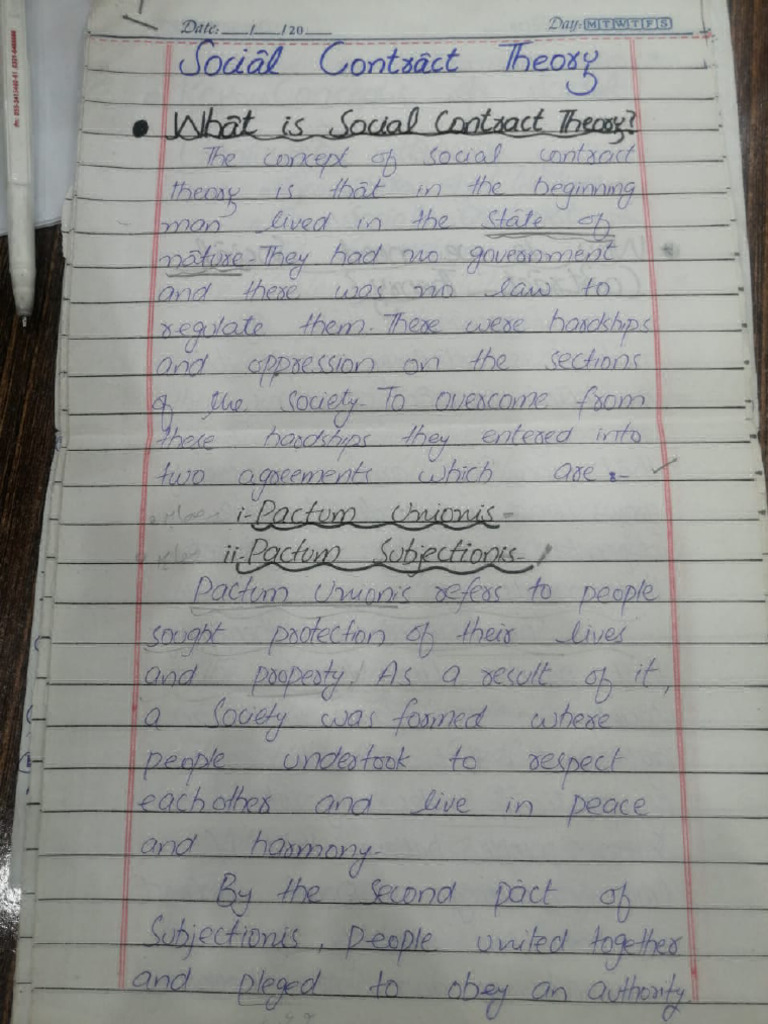 Date: ___/___/20___ Day: M T W T F S
Social Contract Theory
• What is Social Contract Theory?
The concept of social contract
theory is that in the beginning
man lived in the state of
nature. They had no government
and there was no law to
regulate them. There were hardships
and oppression on the sections
of the society. To overcome from
these hardships they entered into
two agreements which are :-
i- Pactum Unionis -
ii- Pactum Subjectionis -
Pactum Unionis refers to people
sought protection of their lives
and property. As a result of it,
a society was formed where
people undertook to respect
each other and live in peace
and harmony-
By the second pact of
Subjectionis, people united together
and pleged to obey an authority